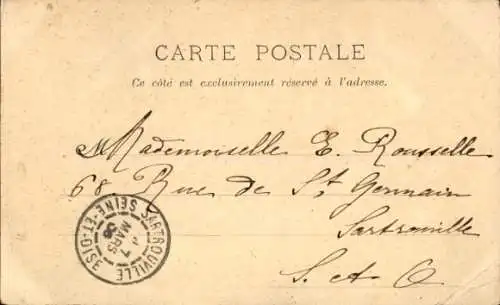 CARTE POSTALE
Ce côté est exclusivement réservé à l'adresse.
Mademoiselle E. Rousselle
68 Rue de St Germain
Sartrouville
S. et O
SARTROUVILLE
SEINE-ET-OISE
7
MARS